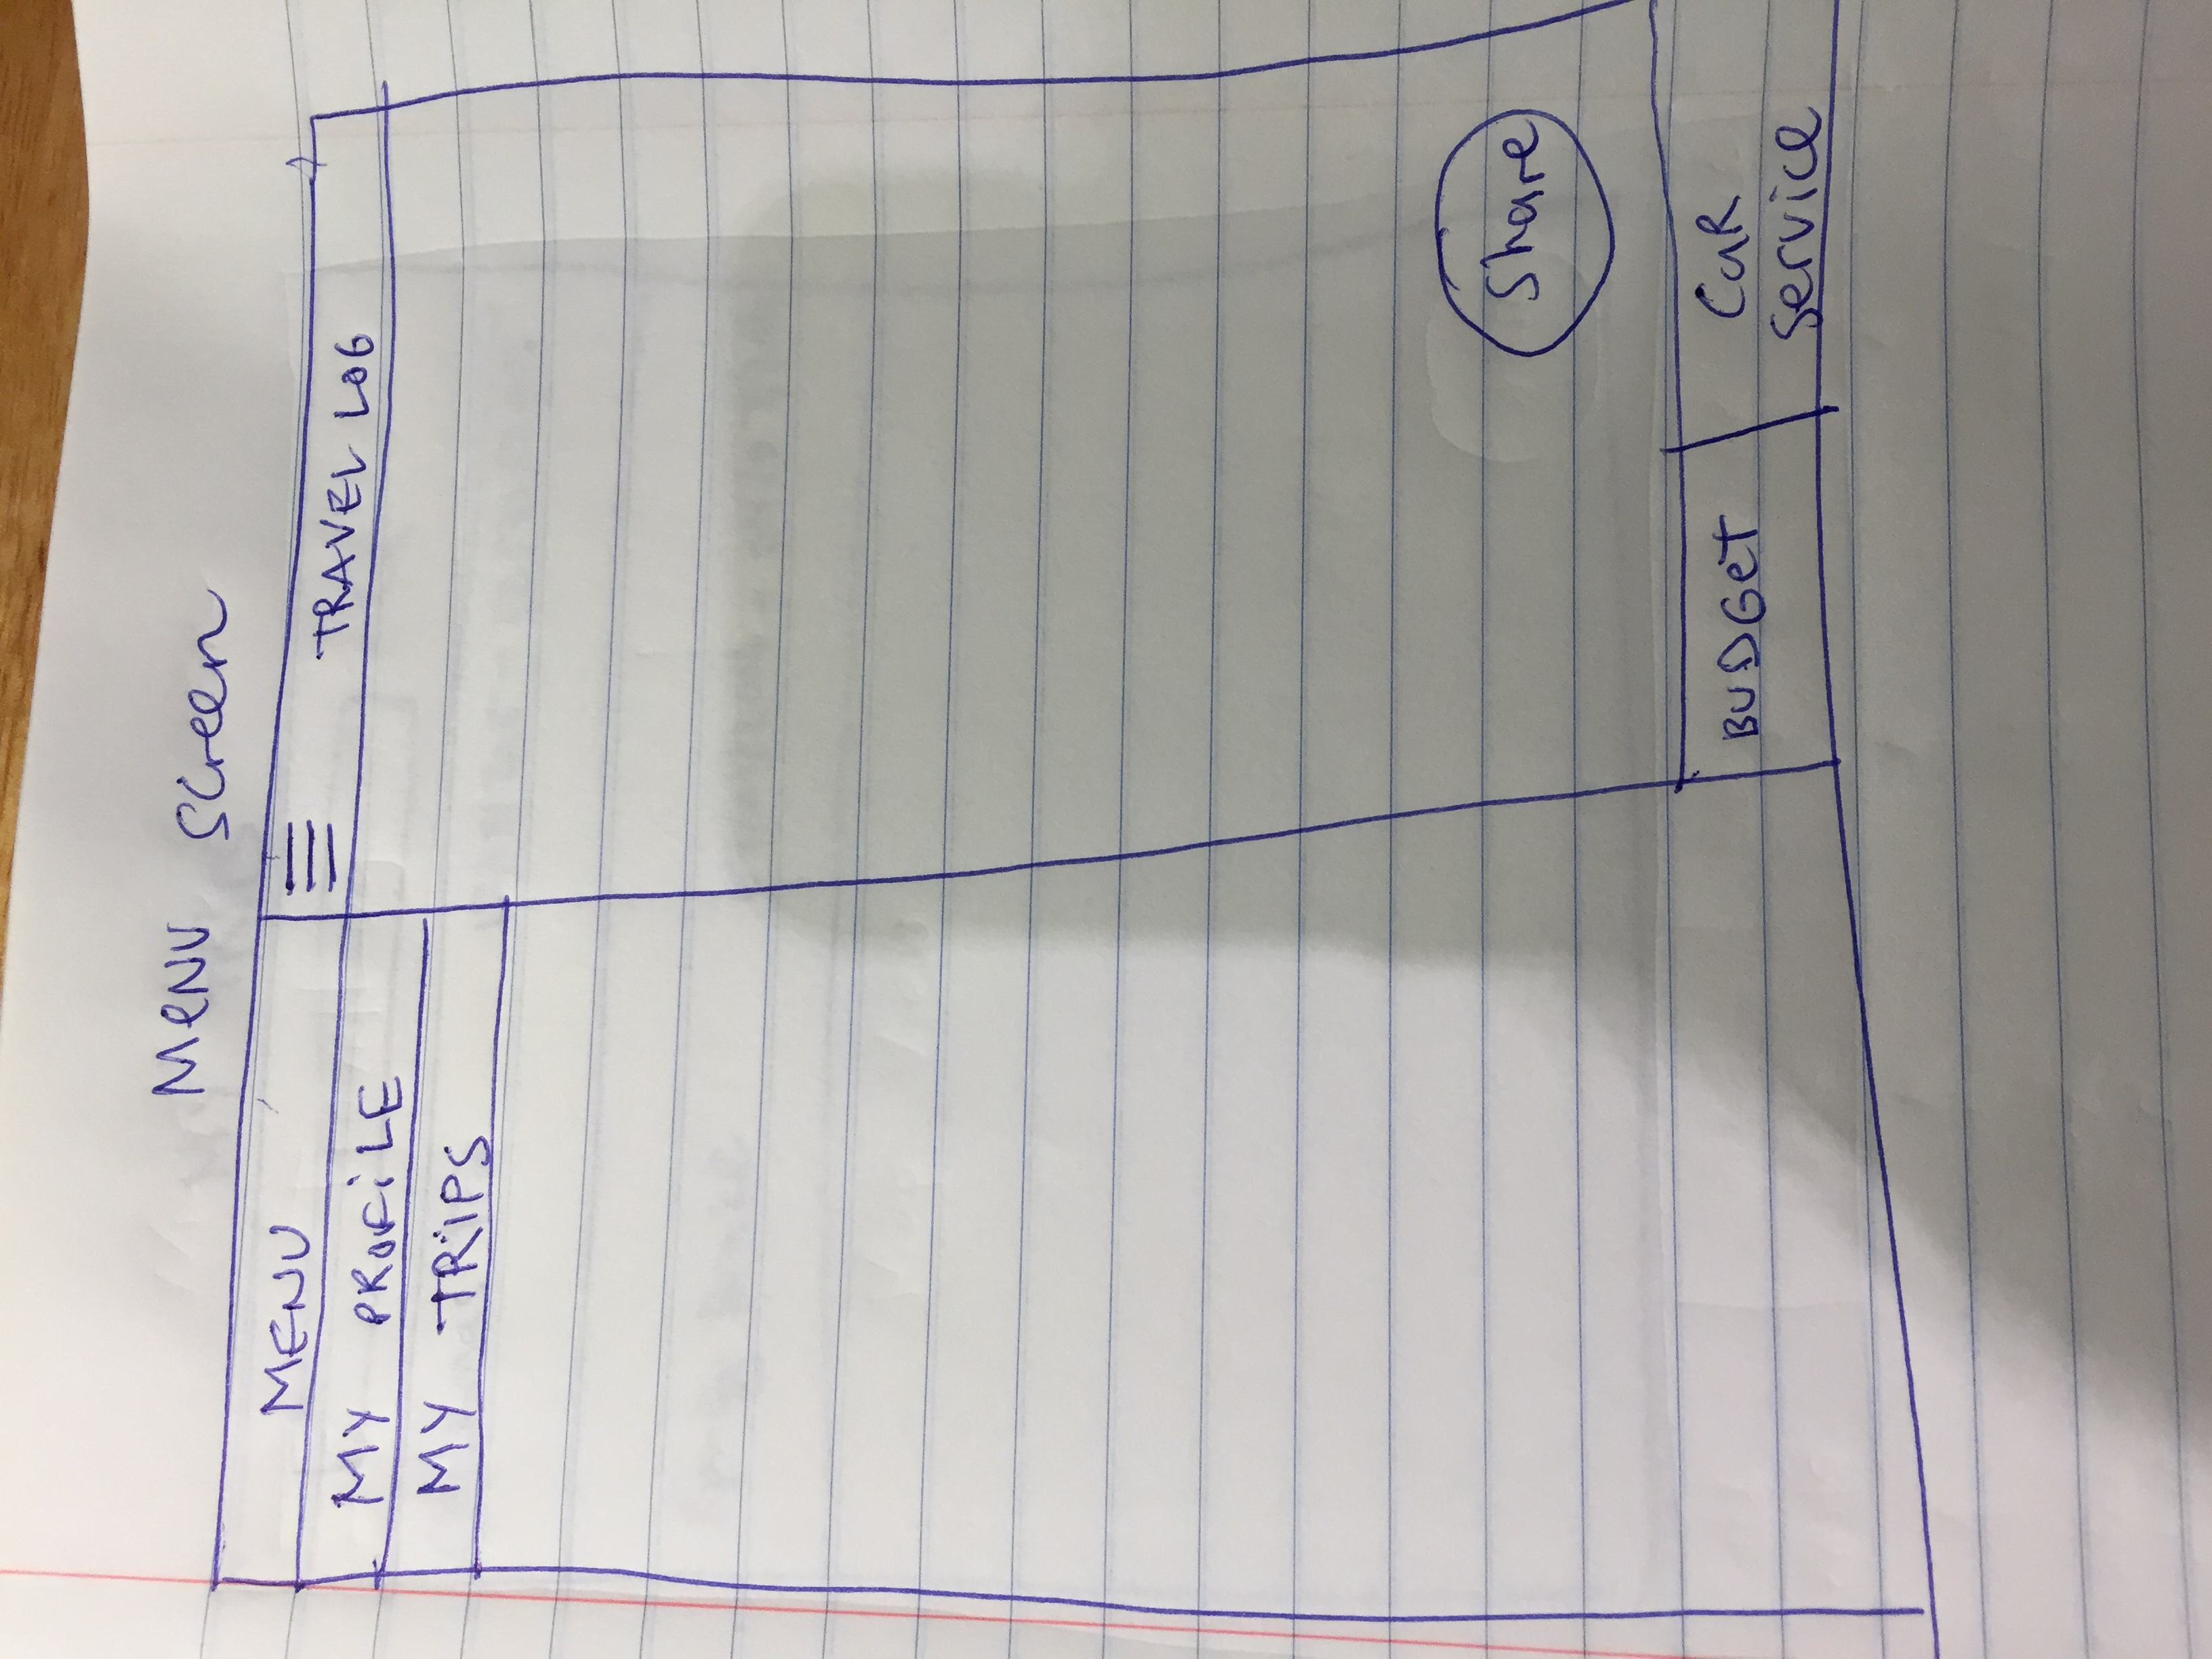 MENU Screen
MENU
MY PROFILE
MY TRIPS
TRAVEL LOG
Share
BUDGET
CAR
Service